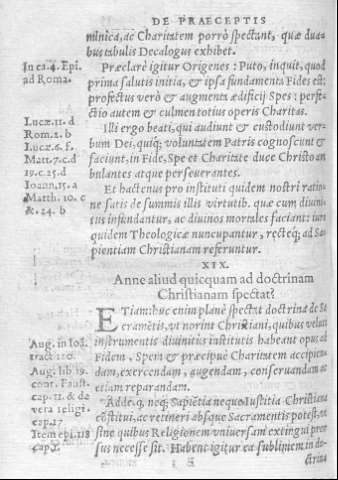 DE PRAECEPTIS
minica, ac Charitatem porrò spectant, quæ dua-
bus tabulis Decalogus exhibet.
In ca. 4. Epi.
ad Roma.
Præclarè igitur Origenes: Puto, inquit, quod
prima salutis initia, & ipsa fundamenta Fides est:
profectus verò & augmenta ædificij Spes: perfe-
ctio autem & culmen totius operis Charitas.
Lucæ. 11. d
Rom. 2. b
Lucæ. 6. f.
Matt. 7. c. d
19. c. 25. d
Ioann. 15. a
Matth. 10. c
& 24. b
Illi ergo beati, qui audiunt & custodiunt ver-
bum Dei, quiq; voluntatem Patris cognoscunt &
faciunt, in Fide, Spe et Charitate duce Christo am
bulantes atque perseuerantes.
Et hactenus pro instituti quidem nostri ratio-
ne satis de summis illis virtutib. quæ cum diuini-
tus infundantur, ac diuinos mortales faciant: tum
quidem Theologicæ nuncupantur, recteq; ad Sa-
pientiam Christianam referuntur.
XIX.
Anne aliud quicquam ad doctrinam
Christianam spectat?
ETiam: huc enim planè spectat doctrina de Sa
cramētis, vt norint Christiani, quibus veluti
instrumentis diuinitùs institutis habeant opus ad
Fidem, Spem & præcipuè Charitatem accipien-
dam, exercendam, augendam, conseruandam ac
etiam reparandam.
Aug. in Ioā.
tract 120.
Aug. lib 19.
cont. Faust.
cap. 11. & de
vera religi.
cap. 17
Item epi. 118
cap. 1.
Adde, q, neq; Sapiētia neque Iustitia Christiana
cōstitui, ac retineri absque Sacramentis potest, vt
sine quibus Religionem vniuersam extingui pror
sus necesse sit. Habent igitur ea sublimem in do-
ctrina